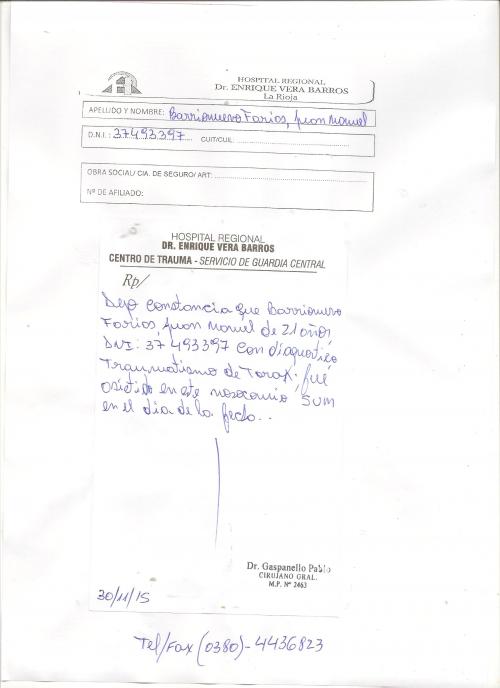 HOSPITAL REGIONAL
Dr. ENRIQUE VERA BARROS
La Rioja
APELLIDO Y NOMBRE: Barrionuevo Farias, Juan Manuel
D.N.I.: 37493397 CUIT/CUIL:
OBRA SOCIAL/ CIA. DE SEGURO/ ART:
Nº DE AFILIADO:
HOSPITAL REGIONAL
DR. ENRIQUE VERA BARROS
CENTRO DE TRAUMA - SERVICIO DE GUARDIA CENTRAL
Rp/
Dejo constancia que Barrionuevo
Farias, Juan Manuel de 21 años,
DNI: 37 493397 con diagnostico
Traumatismo de Torax, fué
asistido en este nosocomio, SUM
en el dia de la fecha..
Dr. Gaspanello Pablo
CIRUJANO GRAL.
M.P. Nº 2463
30/11/15
Tel/Fax (0380)-4436823